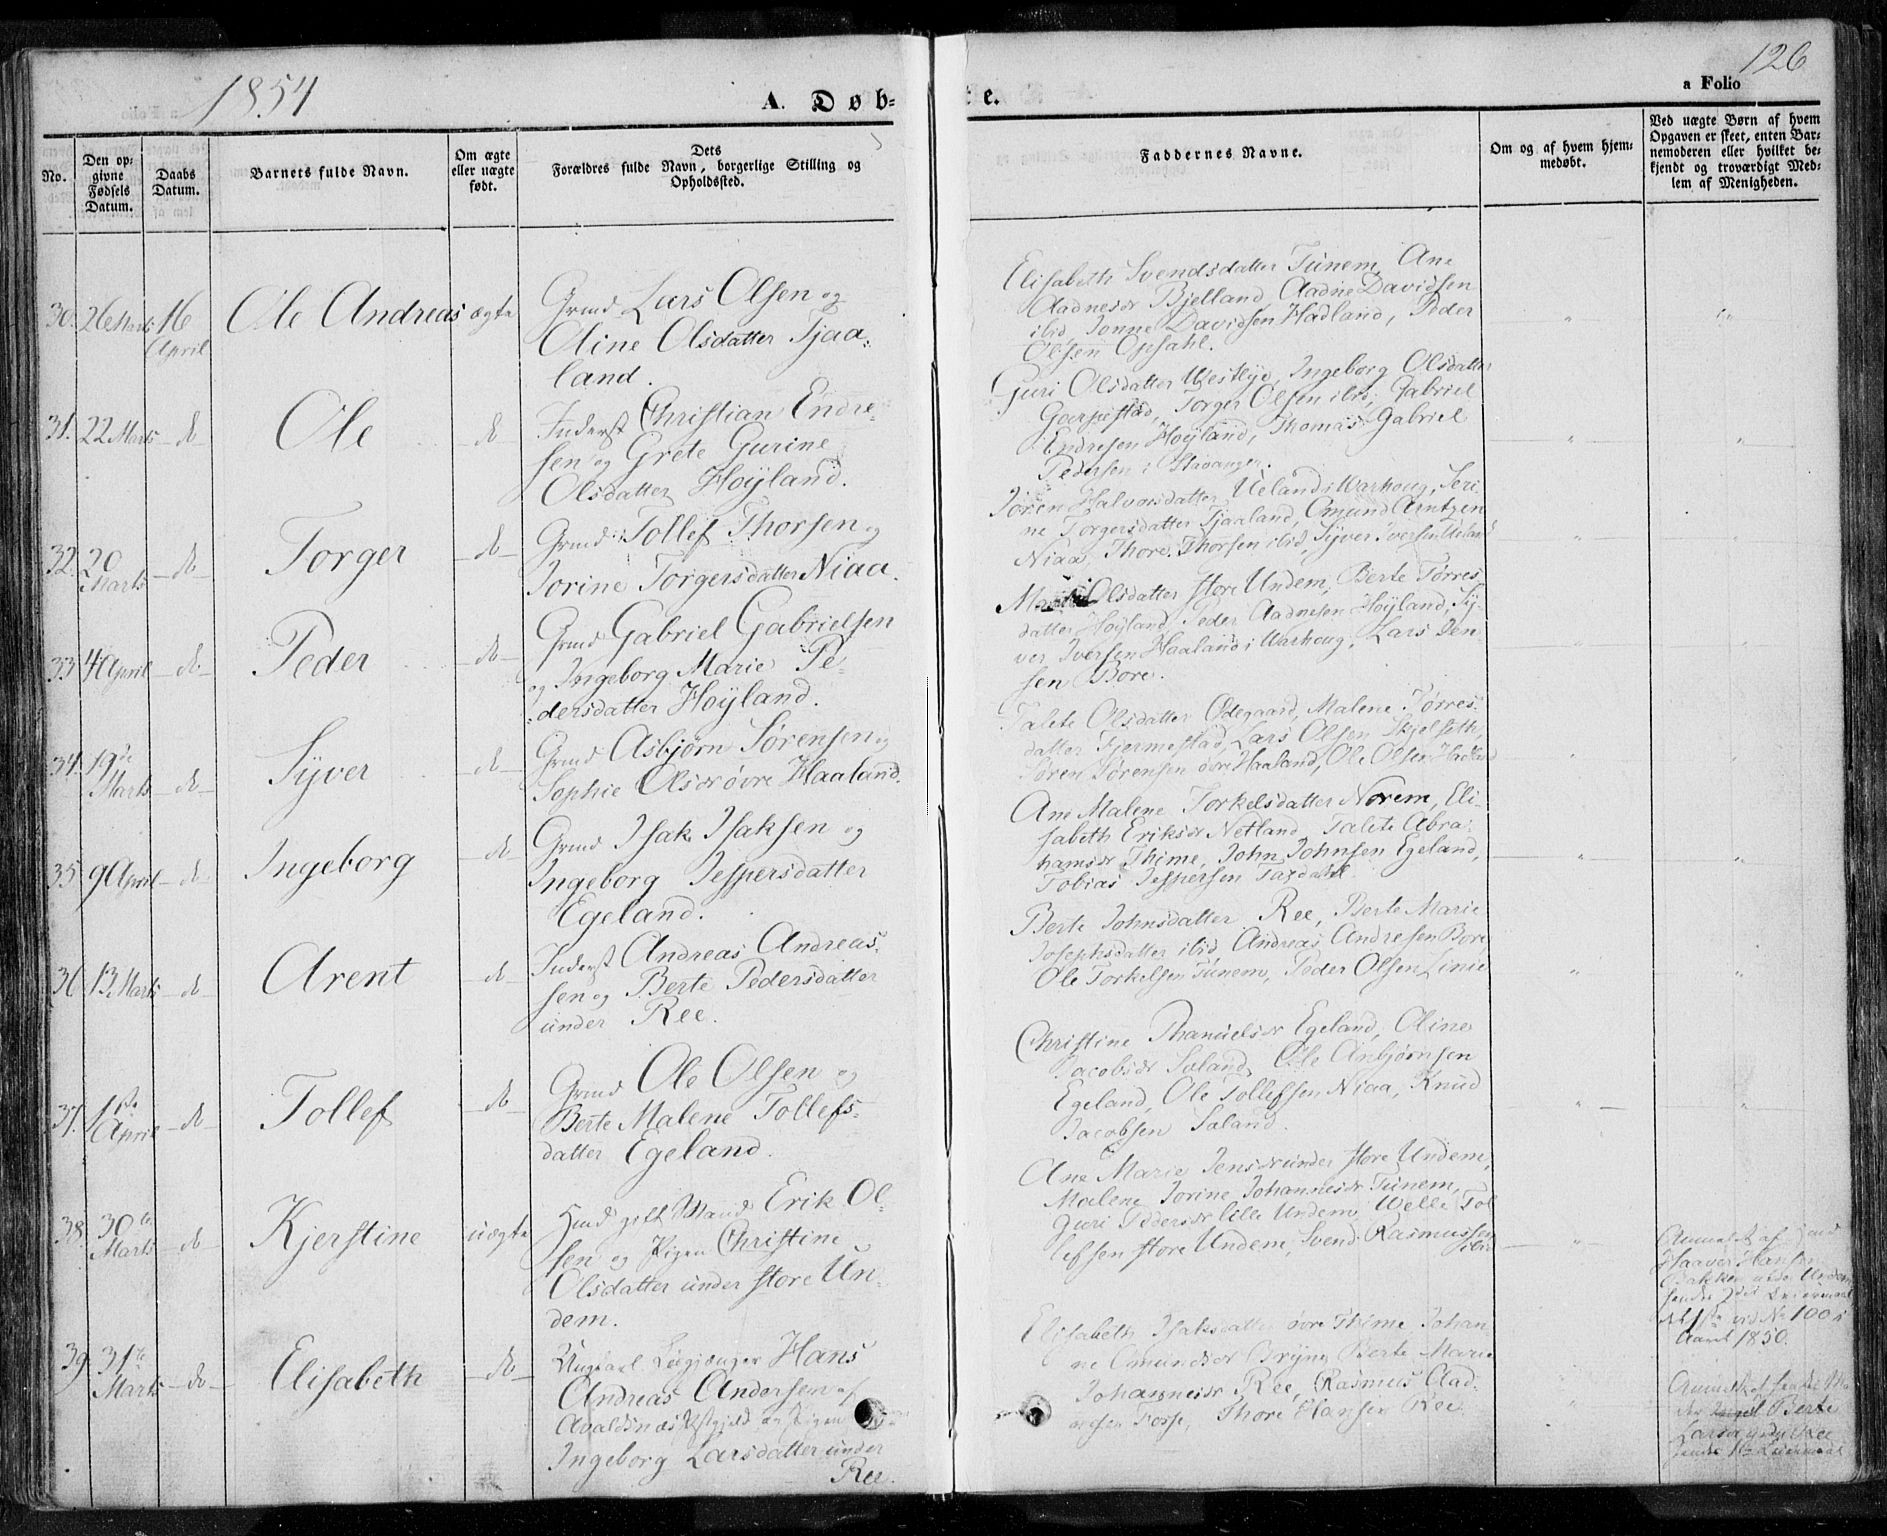 1854
A. Døb-
te.
a Folio
126
No.
Den op-
givne
Fødsels
Datum.
Daabs
Datum.
Barnets fulde Navn.
Om ægte
eller uægte
født.
Dets
Forældres fulde Navn, borgerlige Stilling og
Opholdssted.
Faddernes Navne.
Om og af hvem hjem-
medøbt.
Ved uægte Børn af hvem
Opgaven er skeet, enten Bar-
nemoderen eller hvilket be-
kjendt og troværdigt Med-
lem af Menigheden.
30. 26 Marts 16 April Ole Andreas ægte
Grmd Lars Olsen og
Oline Olsdatter Tjaa-
land.
Elisabeth Svendsdatter Tunem, Ane
Aadnesdr Bjelland, Aadne Davidsen
ibid, Jonne Davidsen Hadland, Peder
Olsen Opsahl.
31. 22 Marts do Ole do
Inderst Christian Endre-
sen og Grete Gurine
Olsdatter Høyland.
Guri Olsdatter Westlye, Ingeborg Olsdatter
Garpestad, Torger Olsen ibid, Gabriel
Endresen Høyland, Thomas Gabriel
Pedersen i Stavanger.
32. 20 Marts do Torger do
Grmd Tollef Thorsen og
Jorine Torgersdatter Niaa.
Joren Halvorsdatter Ueland i Warhoug, Seri-
ne Torgersdatter Tjaaland, Omund Arntzen
Niaa, Thore Thorsen ibid, Syver Iversen Ueland
33 4 April do Peder do
Grmd Gabriel Gabrielsen
og Ingeborg Marie Pe-
dersdatter Høyland.
Olsdatter store Undem, Berte Tørres-
datter Høyland, Peder Aadnesen Høyland, Sy-
ver Iversen Haaland i Warhoug, Lars Jen-
sen Bore.
34. 19de Marts do Syver do
Grmd Asbjørn Sørensen og
Sophie Olsdr øvre Haaland.
Talete Olsdatter Ødegaard, Malene Tørres-
datter Fjermestad, Lars Olsen Skjelseth,
Søren Sørensen øvre Haaland, Ole Olsen Hadland
35 9 April do Ingeborg do
Grmd Isak Isaksen og
Ingeborg Jespersdatter
Egeland.
Ane Malene Torkelsdatter Norem, Eli-
sabeth Eriksdr Netland, Talete Abra-
hamsdr Thime, John Johnsen Egeland,
Tobias Jespersen Taxdahl.
36 13 Marts do Arent do
Inderst Andreas Andreas-
sen og Berte Pedersdatter
under Ree.
Berte Johnsdatter Ree, Berte Marie
Josephsdatter ibid, Andreas Andresen Bore,
Ole Torkelsen Tunem, Peder Olsen Linie
37. 1ste April do Tollef do
Grmd Ole Olsen og
Berte Malene Tollefs-
datter Egeland.
Christine Thanuelsdr Egeland, Oline
Jacobsdr Søland, Ole Anbjørnsen
Egeland, Ole Tollefsen Niaa, Knud
Jacobsen Søland.
38. 30te Marts do Kjerstine uægte
Hmd gift Mand Erik Ol-
sen og Pigen Christine
Olsdatter under store Un-
dem.
Ane Marie Jensdr under store Undem,
Malene Jorine Johannesdr Tunem,
Guri Pedersdr lille Undem, Welle Tol
lefsen store Undem, Svend Rasmussen
ibid
Anmeldt af
Haaver Hansen
Bakken under Undem
No 100 i
Aaret 1850.
39. 31te Marts do Elisabeth do
Ungkarl Hans
Andreas Andersen af
Avaldsnæs Pstgjeld, og Pigen
Ingeborg Larsdatter under
Ree.
Elisabeth Isaksdatter øvre Thime, Johan
ne Omundsdr Bryne, Berte Marie
Johannesdr Ree, Rasmus Aad-
nesen Fosse, Thore Hansen Ree.
Anmeldt
Berte
Larsdr under Ree